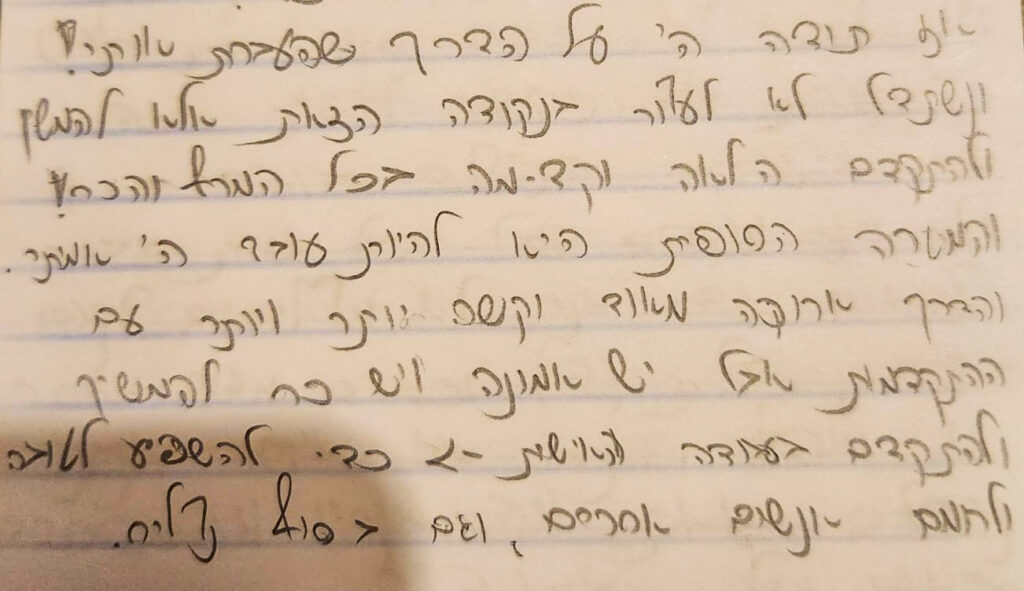 אז תודה ה' על הדרך שהעברת אותי!
ונשתדל לא לעצור בנקודה הזאת אלא להמשיך
ולהתקדם הלאה וקדימה בכל המרץ והכח!
והמטרה הסופית היא להיות עובד ה' אמתי.
והדרך ארוכה מאוד וקשה יותר ויותר עם
ההתקדמות אבל יש אמונה ויש כח להמשיך
ולהתקדם בעבודה האישית -> כדי להשפיע לטובה
ולרומם אנשים אחרים, וגם בסוף נצליח.